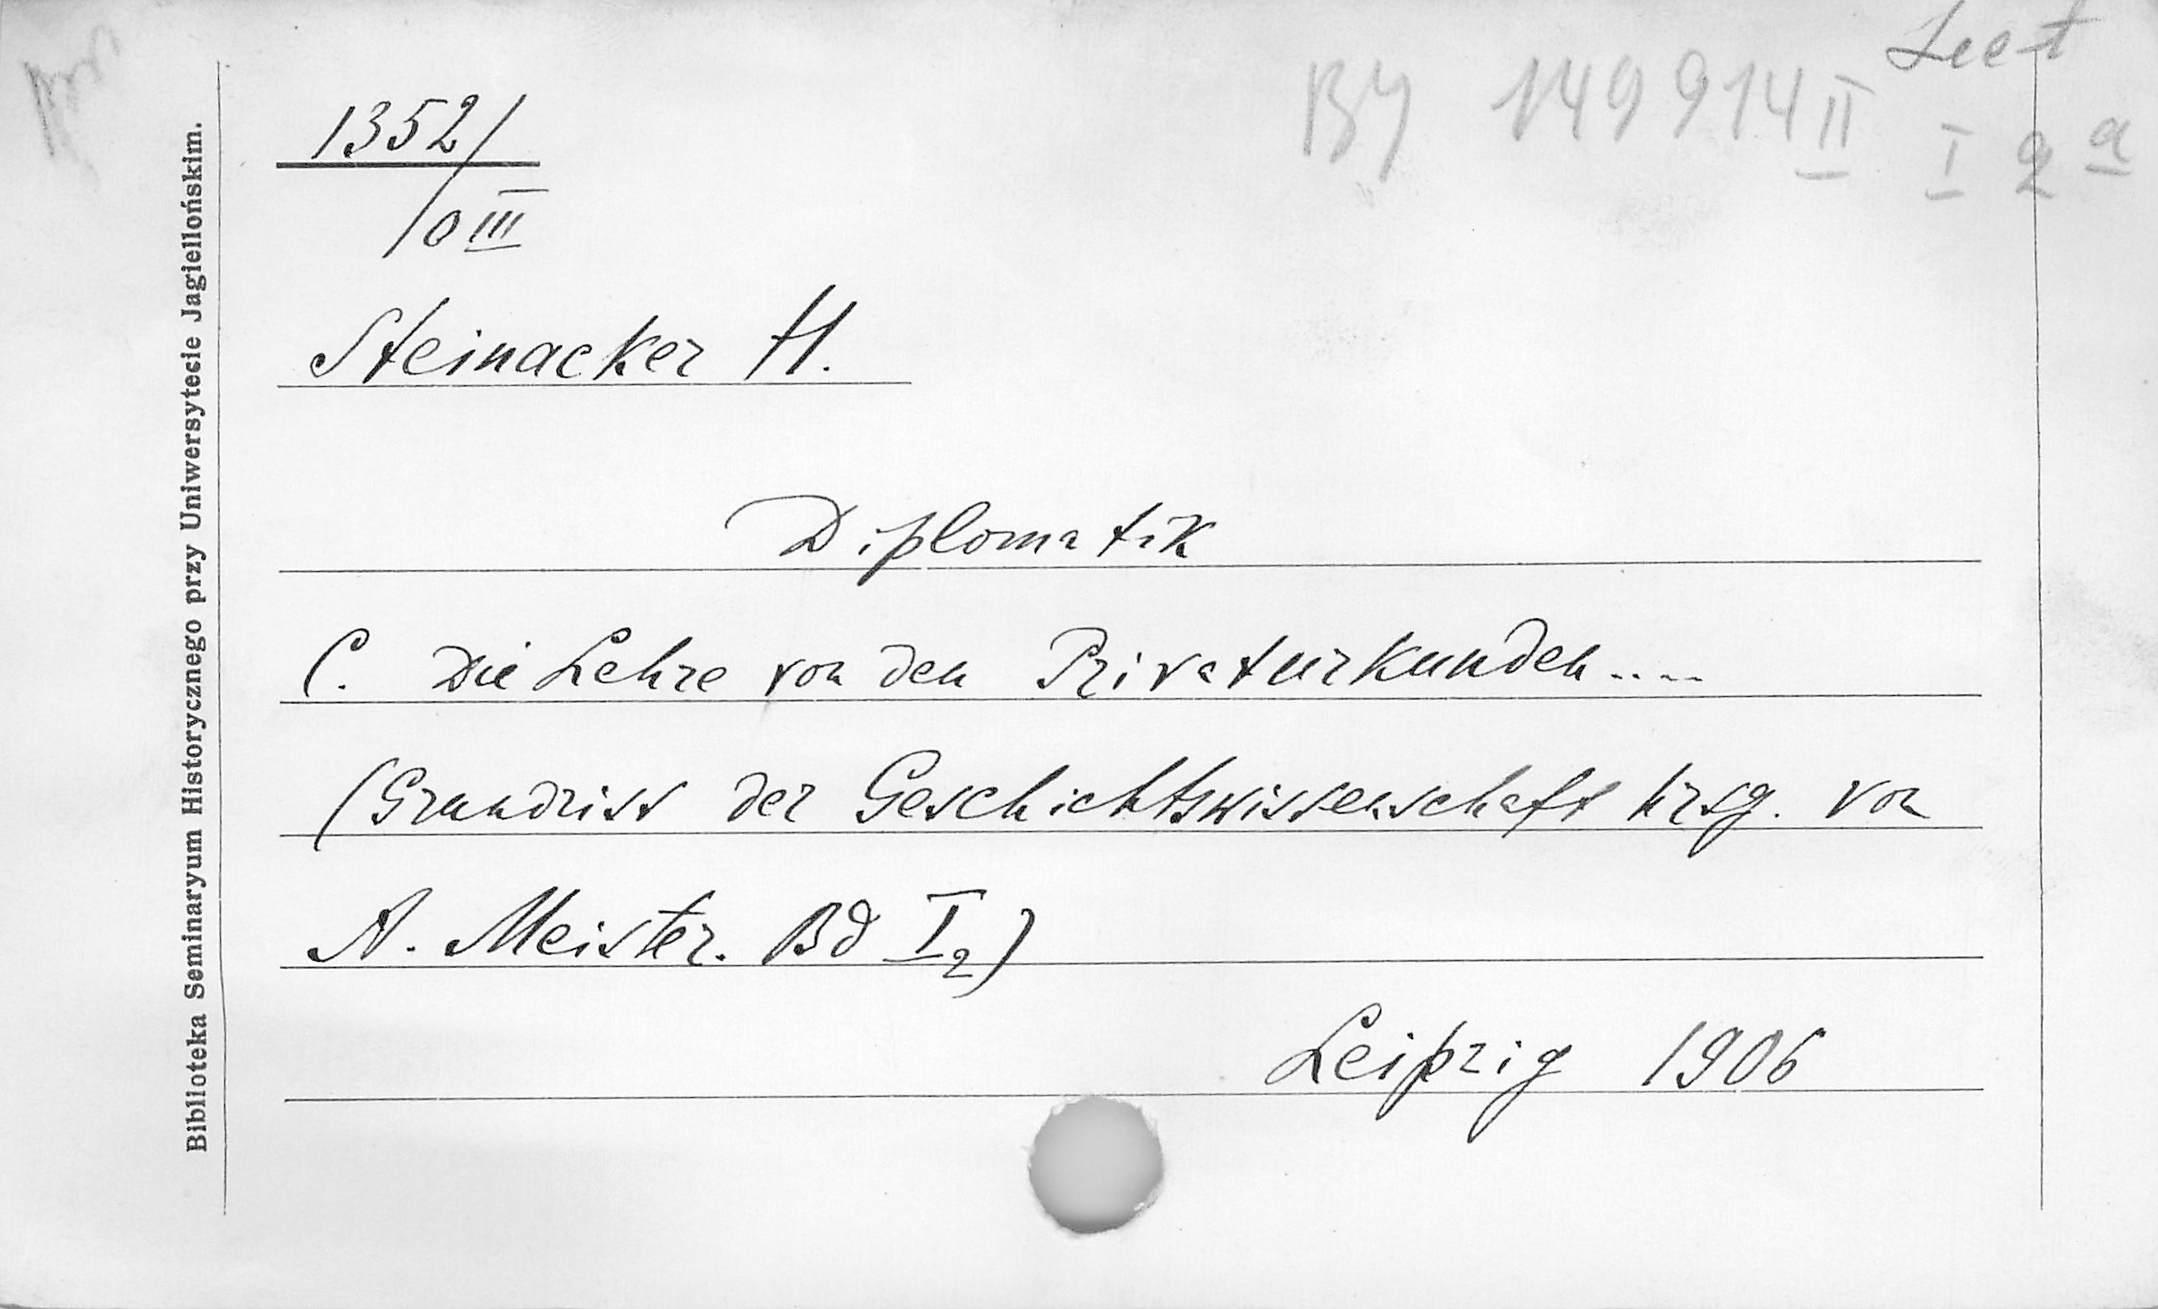 Lect
BJ 149914 II I 2 a
1352/
/0 III
Steinacker H.
Diplomatik
C. Die Lehre von den Privaturkunden....
(Grundriss der Geschichtswissenschaft hrsg. von
A. Meister. Bd I2)
Leipzig 1906
Biblioteka Seminaryum Historycznego przy Uniwersytecie Jagiellońskim.